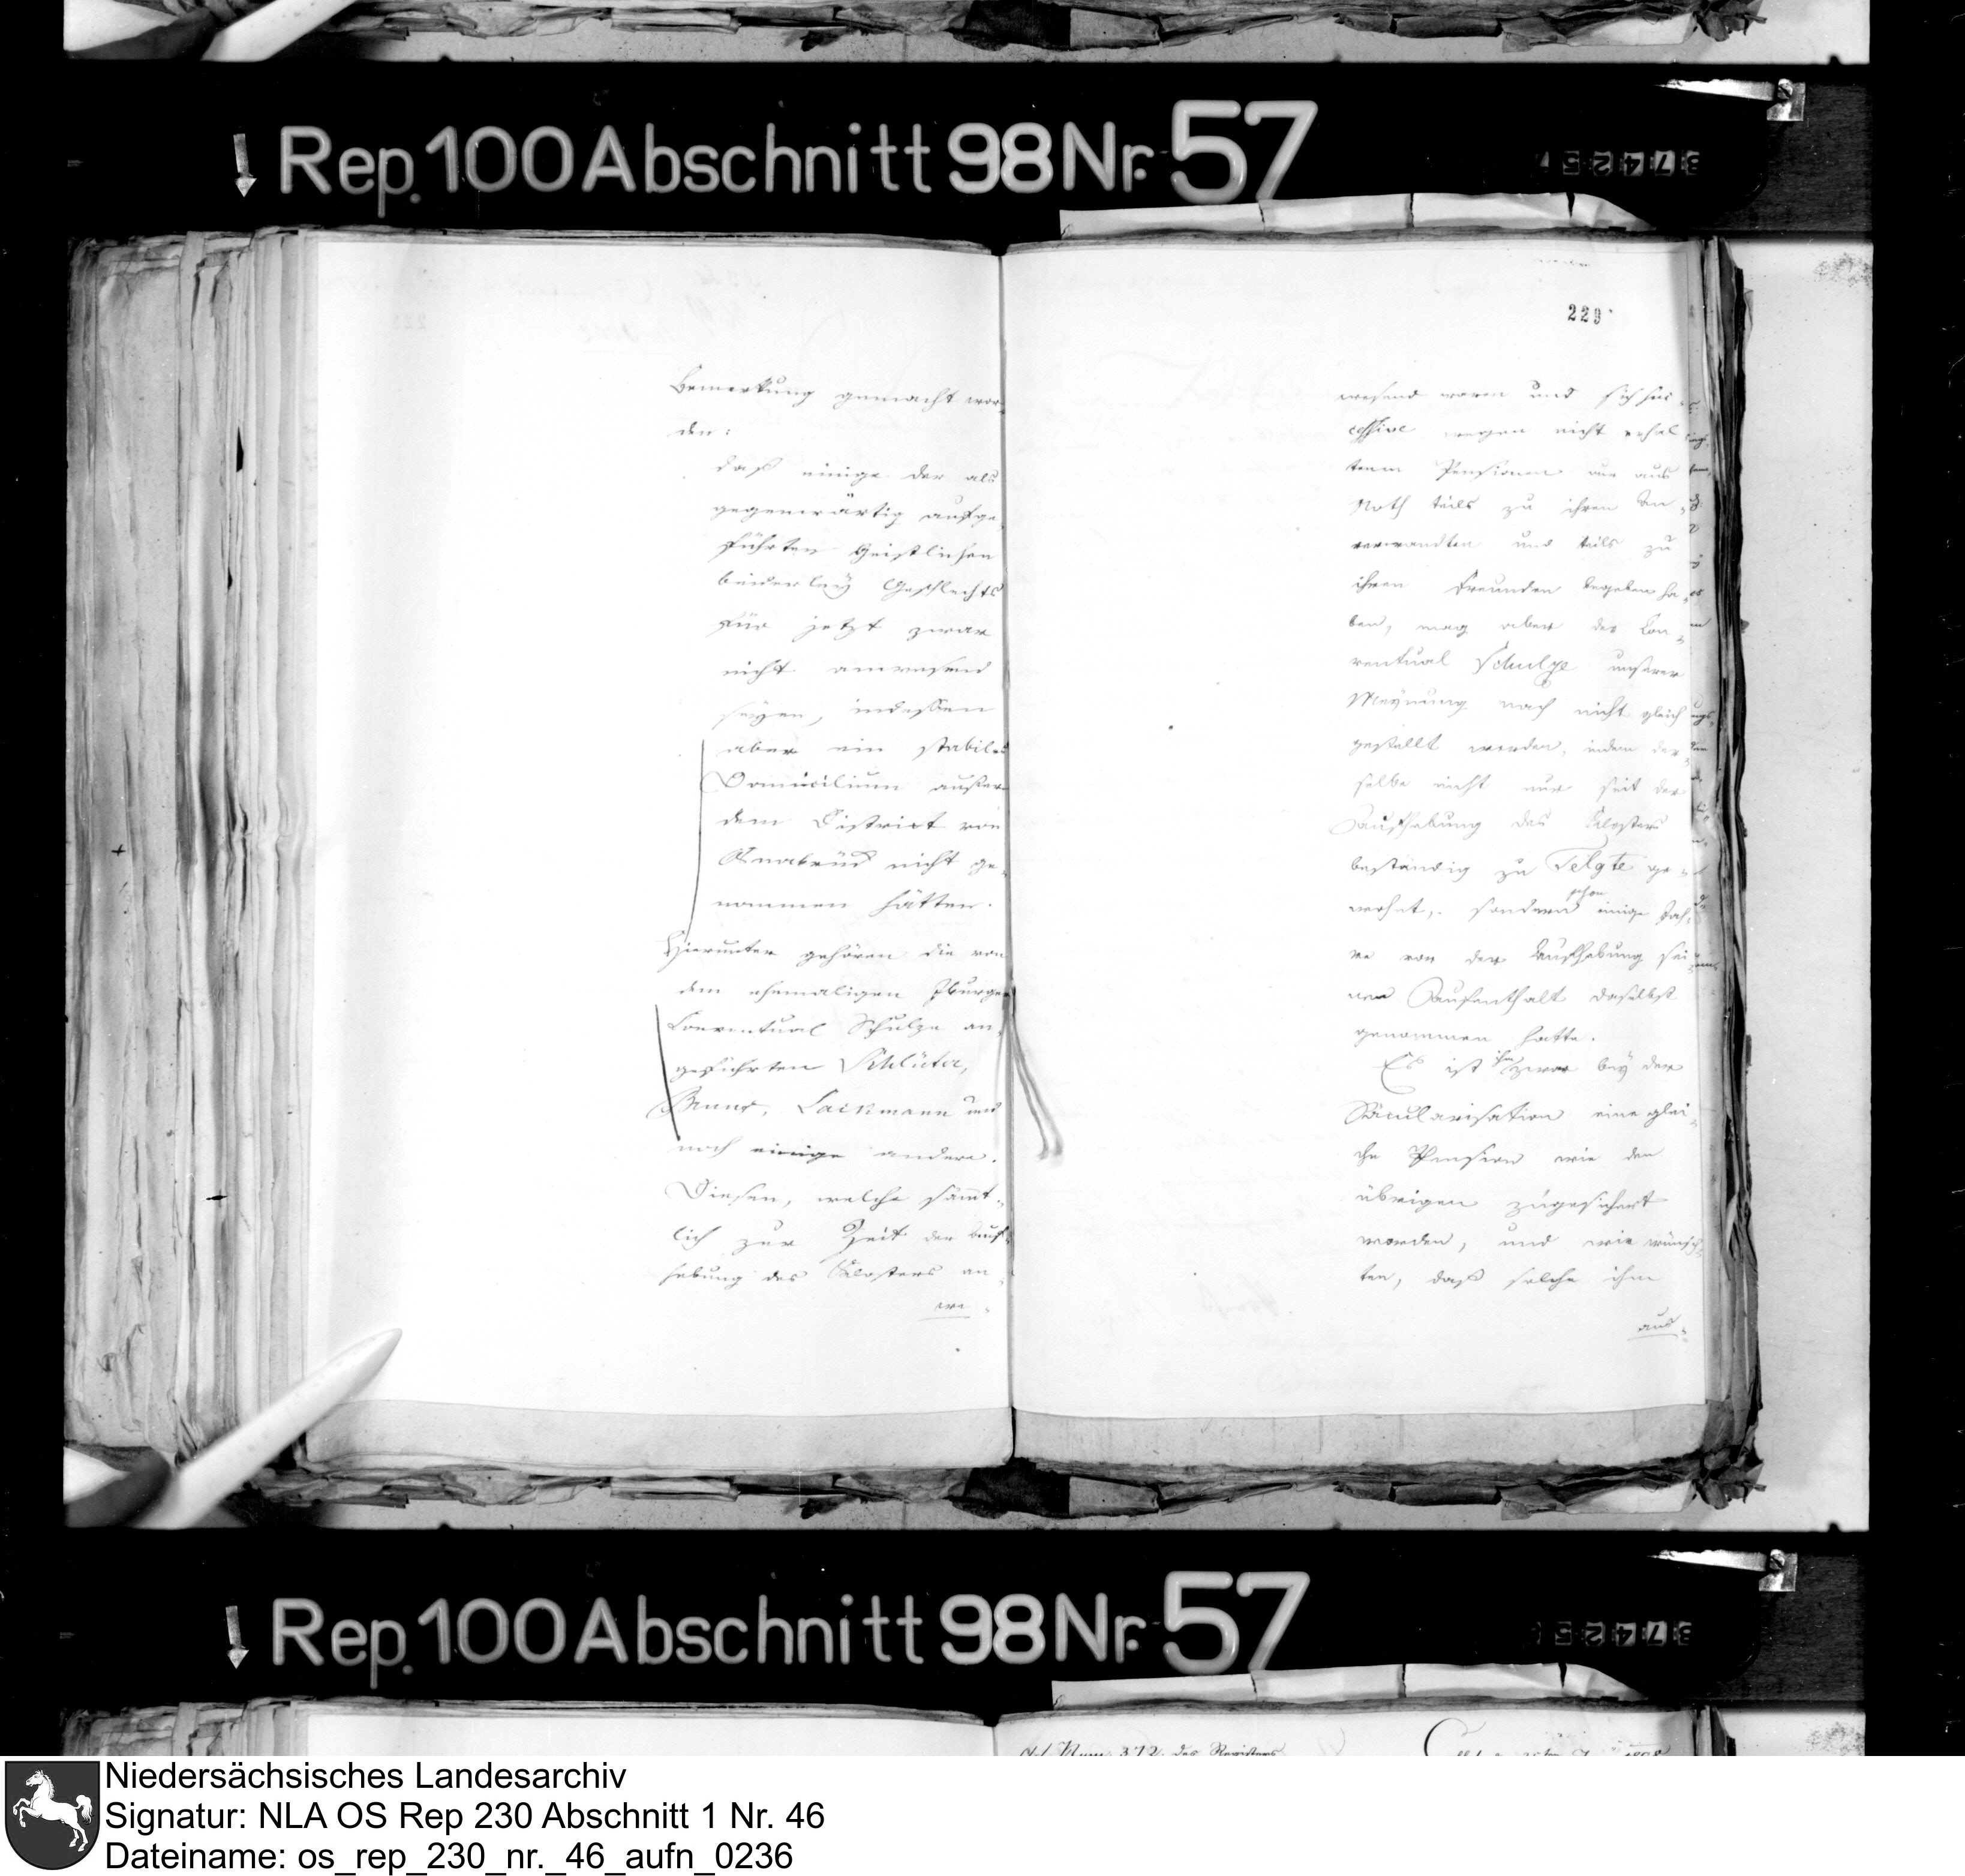 Rep. 100 Abschnitt 98 Nr. 57
37425
Bemerkung gemacht wor-
den:
daß einige der als
gegenwärtig aufge-
führten Geistlichen
beiderley Geschlechts
für jetzt zwar
nicht anwesend
seyen, indessen
aber ein stabiles
Domicilium außer
dem District von
Osnabrück nicht ge-
nommen hätten.
Hierunter gehören die von
dem ehemaligen Iburger
Conventual Schulze an-
geführten Schlüter,
Bruns, Lackmann und
noch einige andere.
Diesen, welche sämt-
lich zur Zeit der Auf-
hebung des Klosters an-
we-
229
wesend waren und sich suc-
cessive wegen nicht erhal-
tenen Pensionen nur aus
Noth teils zu ihren An-
verwandten und teils zu
ihren Freunden begeben ha-
ben, mag aber der Con-
ventual Schulze unserer
Meynung nach nicht gleich
gestellt werden, indem der-
selbe nicht nur seit der
Aufhebung des Klosters
beständig zu Telgte ge-
wohnt, sondern schon einige Jah-
re vor der Aufhebung sei-
nen Aufenthalt daselbst
genommen hatte.
Es ist ihm zwar bey der
Säcularisation eine glei-
che Pension wie den
übrigen zugesichert
worden, und wir wünsch-
ten, daß solche ihm
aus-
Rep. 100 Abschnitt 98 Nr. 57
37425
Ad Num. 372. des Registers
Niedersächsisches Landesarchiv
Signatur: NLA OS Rep 230 Abschnitt 1 Nr. 46
Dateiname: os_rep_230_nr._46_aufn_0236